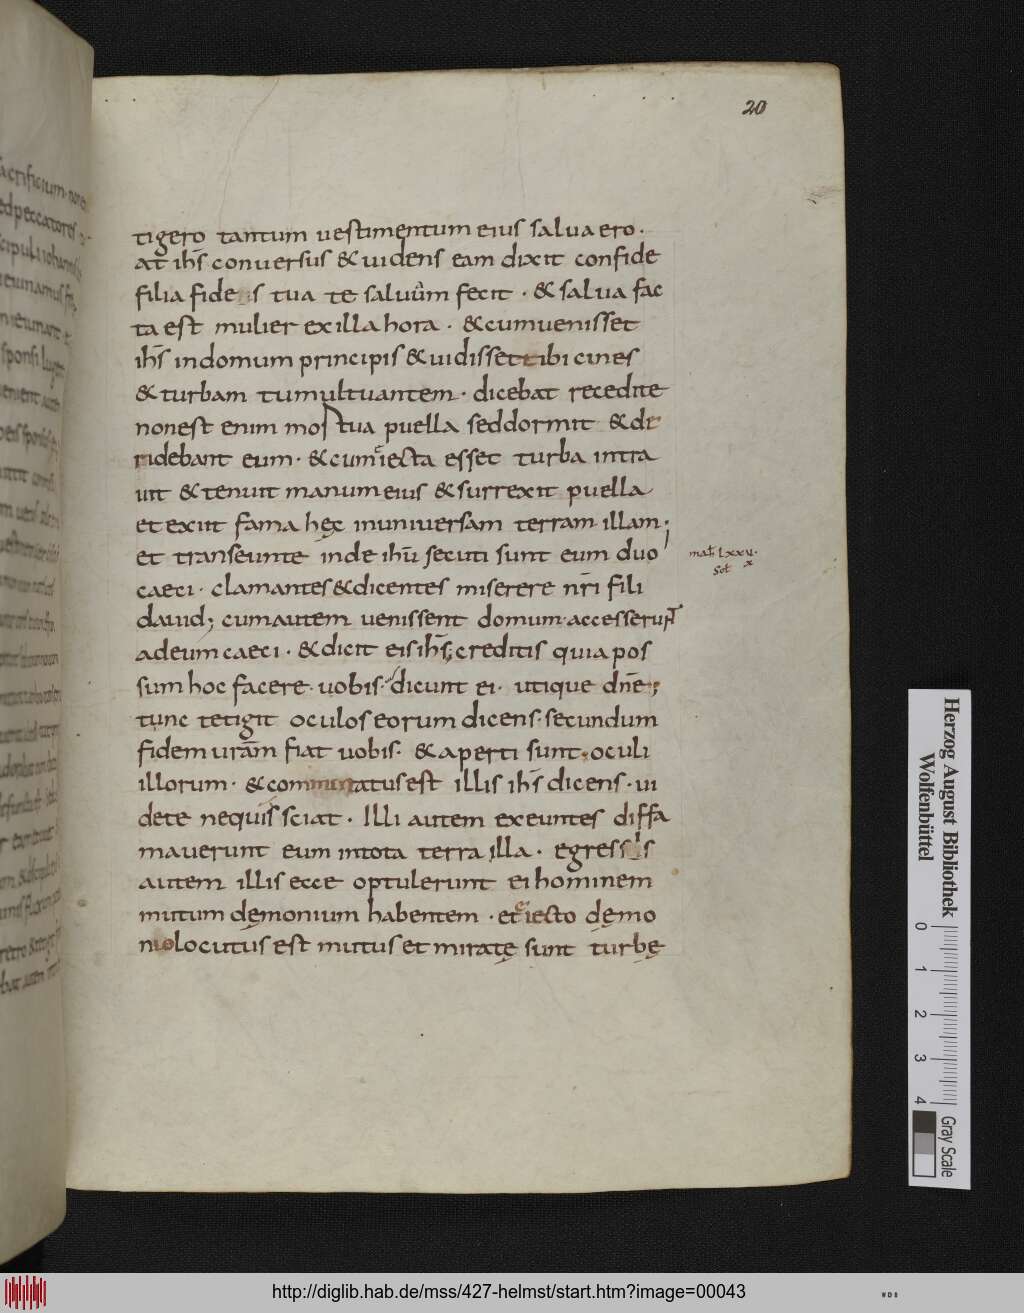 20
tigero tantum uestimentum eius salua ero.
at ihs̄ conuersus & uidens eam dixit confide
filia fides tua te saluūm fecit . & salua fac
ta est mulier ex illa hora . & cum uenisset
ihs̄ in domum principis & uidisset tibicines
& turbam tumultuantem . dicebat recedite
non est enim mortua puella sed dormit & de
ridebant eum . & cum eiecta esset turba intra
uit & tenuit manum eius & surrexit puella
et exiit fama hęc in uniuersam terram illam;
et transeunte inde ihū secuti sunt eum duo
mat̄ Lxxu.
x
caeci . clamantes & dicentes miserere nr̄i fili
dauid; cum autem uenissent domum accesserunt
ad eum caeci . & dicit eis ihs̄; creditis quia pos
sum hoc facere uobis . dicunt ei . utique dn̄e;
tunc tetigit oculos eorum dicens . secundum
fidem urām fiat uobis . & aperti sunt oculi
illorum . & comminatus est illis ihs̄ dicens . ui
dete nequis sciat . Illi autem exeuntes diffa
mauerunt eum in tota terra illa . egressis
autem illis ecce optulerunt ei hominem
mutum dęmonium habentem . et eiecto dęmo
nio locutus est mutus et miratę sunt turbę
Herzog August Bibliothek
Wolfenbüttel
0 1 2 3 4
Gray Scale
http://diglib.hab.de/mss/427-helmst/start.htm?image=00043